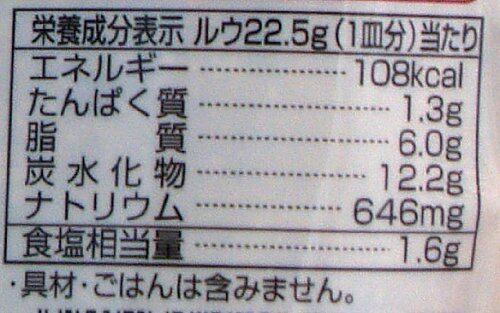 栄養成分表示 ルウ22.5g(1皿分)当たり
エネルギー 108kcal
たんぱく質 1.3g
脂質 6.0g
炭水化物 12.2g
ナトリウム 646mg
食塩相当量 1.6g
・具材・ごはんは含みません。